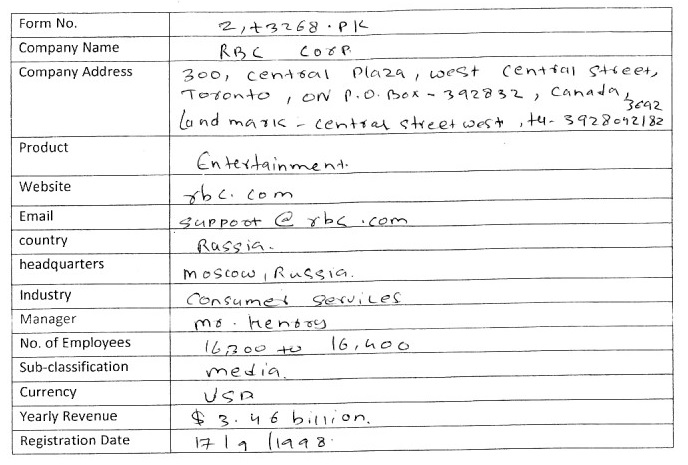 Form No. 2,+3268.PK
Company Name RBC Corp.
Company Address 300, central Plaza, west central street,
Toronto, ON P.O. Box - 392832, Canada,
3692
Land mark - central street west, +4- 3928042182
Product Entertainment.
Website rbc.com
Email support@rbc.com
country Russia.
headquarters moscow, Russia.
Industry Consumer services
Manager mr. Henroy
No. of Employees 16,300 to 16,400
Sub-classification media.
Currency USD
Yearly Revenue $ 3.46 billion.
Registration Date 17/9/1998.